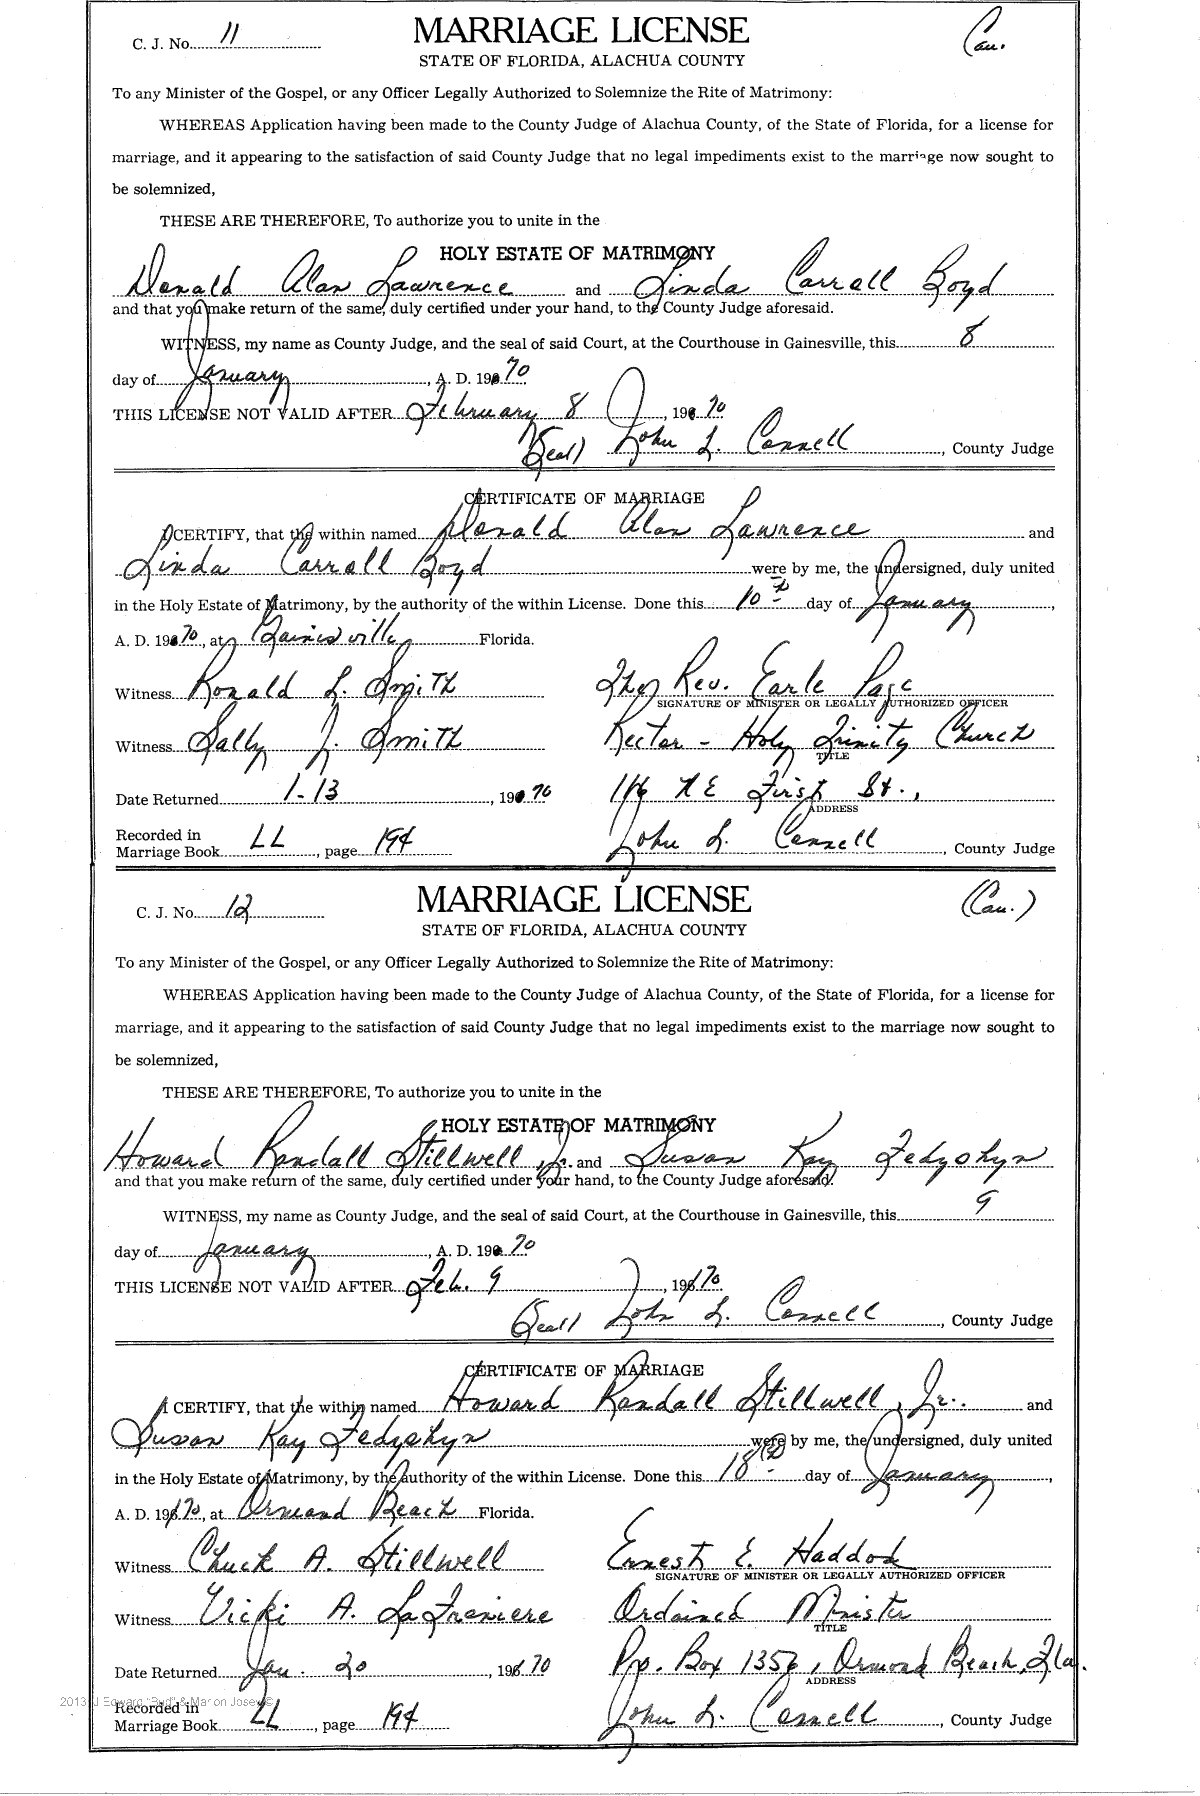 C. J. No. 11
MARRIAGE LICENSE
Cau.
STATE OF FLORIDA, ALACHUA COUNTY
To any Minister of the Gospel, or any Officer Legally Authorized to Solemnize the Rite of Matrimony:
WHEREAS Application having been made to the County Judge of Alachua County, of the State of Florida, for a license for
marriage, and it appearing to the satisfaction of said County Judge that no legal impediments exist to the marriage now sought to
be solemnized,
THESE ARE THEREFORE, To authorize you to unite in the
HOLY ESTATE OF MATRIMONY
Donald Alan Lawrence and Linda Carroll Boyd
and that you make return of the same, duly certified under your hand, to the County Judge aforesaid.
WITNESS, my name as County Judge, and the seal of said Court, at the Courthouse in Gainesville, this 8
day of January, A. D. 1970
THIS LICENSE NOT VALID AFTER February 8, 1970
(Seal) John L. Connell, County Judge
CERTIFICATE OF MARRIAGE
I CERTIFY, that the within named Donald Alan Lawrence and
Linda Carroll Boyd were by me, the undersigned, duly united
in the Holy Estate of Matrimony, by the authority of the within License. Done this 10th day of January,
A. D. 1970, at Gainesville Florida.
Witness Ronald L. Smith The Rev. Earle Page
SIGNATURE OF MINISTER OR LEGALLY AUTHORIZED OFFICER
Witness Sally J. Smith Rector - Holy Trinity Church
TITLE
Date Returned 1-13, 1970 116 NE First St.,
ADDRESS
Recorded in
Marriage Book LL, page 194 John L. Connell, County Judge
C. J. No. 12
MARRIAGE LICENSE
(Cau.)
STATE OF FLORIDA, ALACHUA COUNTY
To any Minister of the Gospel, or any Officer Legally Authorized to Solemnize the Rite of Matrimony:
WHEREAS Application having been made to the County Judge of Alachua County, of the State of Florida, for a license for
marriage, and it appearing to the satisfaction of said County Judge that no legal impediments exist to the marriage now sought to
be solemnized,
THESE ARE THEREFORE, To authorize you to unite in the
HOLY ESTATE OF MATRIMONY
Howard Randall Stillwell, Jr. and Susan Kay Fedyshyn
and that you make return of the same, duly certified under your hand, to the County Judge aforesaid.
WITNESS, my name as County Judge, and the seal of said Court, at the Courthouse in Gainesville, this 9
day of January, A. D. 1970
THIS LICENSE NOT VALID AFTER Feb. 9, 1970
(Seal) John L. Connell, County Judge
CERTIFICATE OF MARRIAGE
I CERTIFY, that the within named Howard Randall Stillwell, Jr. and
Susan Kay Fedyshyn were by me, the undersigned, duly united
in the Holy Estate of Matrimony, by the authority of the within License. Done this 18th day of January,
A. D. 1970, at Ormond Beach Florida.
Witness Chuck A. Stillwell Ernest E. Haddock
SIGNATURE OF MINISTER OR LEGALLY AUTHORIZED OFFICER
Witness Vicki A. LaFraniere Ordained Minister
TITLE
Date Returned Jan. 20, 1970 P.O. Box 1356, Ormond Beach, Fla.
ADDRESS
2013 J Edward "Bud" & Marion Josey ©
Recorded in
Marriage Book LL, page 194 John L. Connell, County Judge